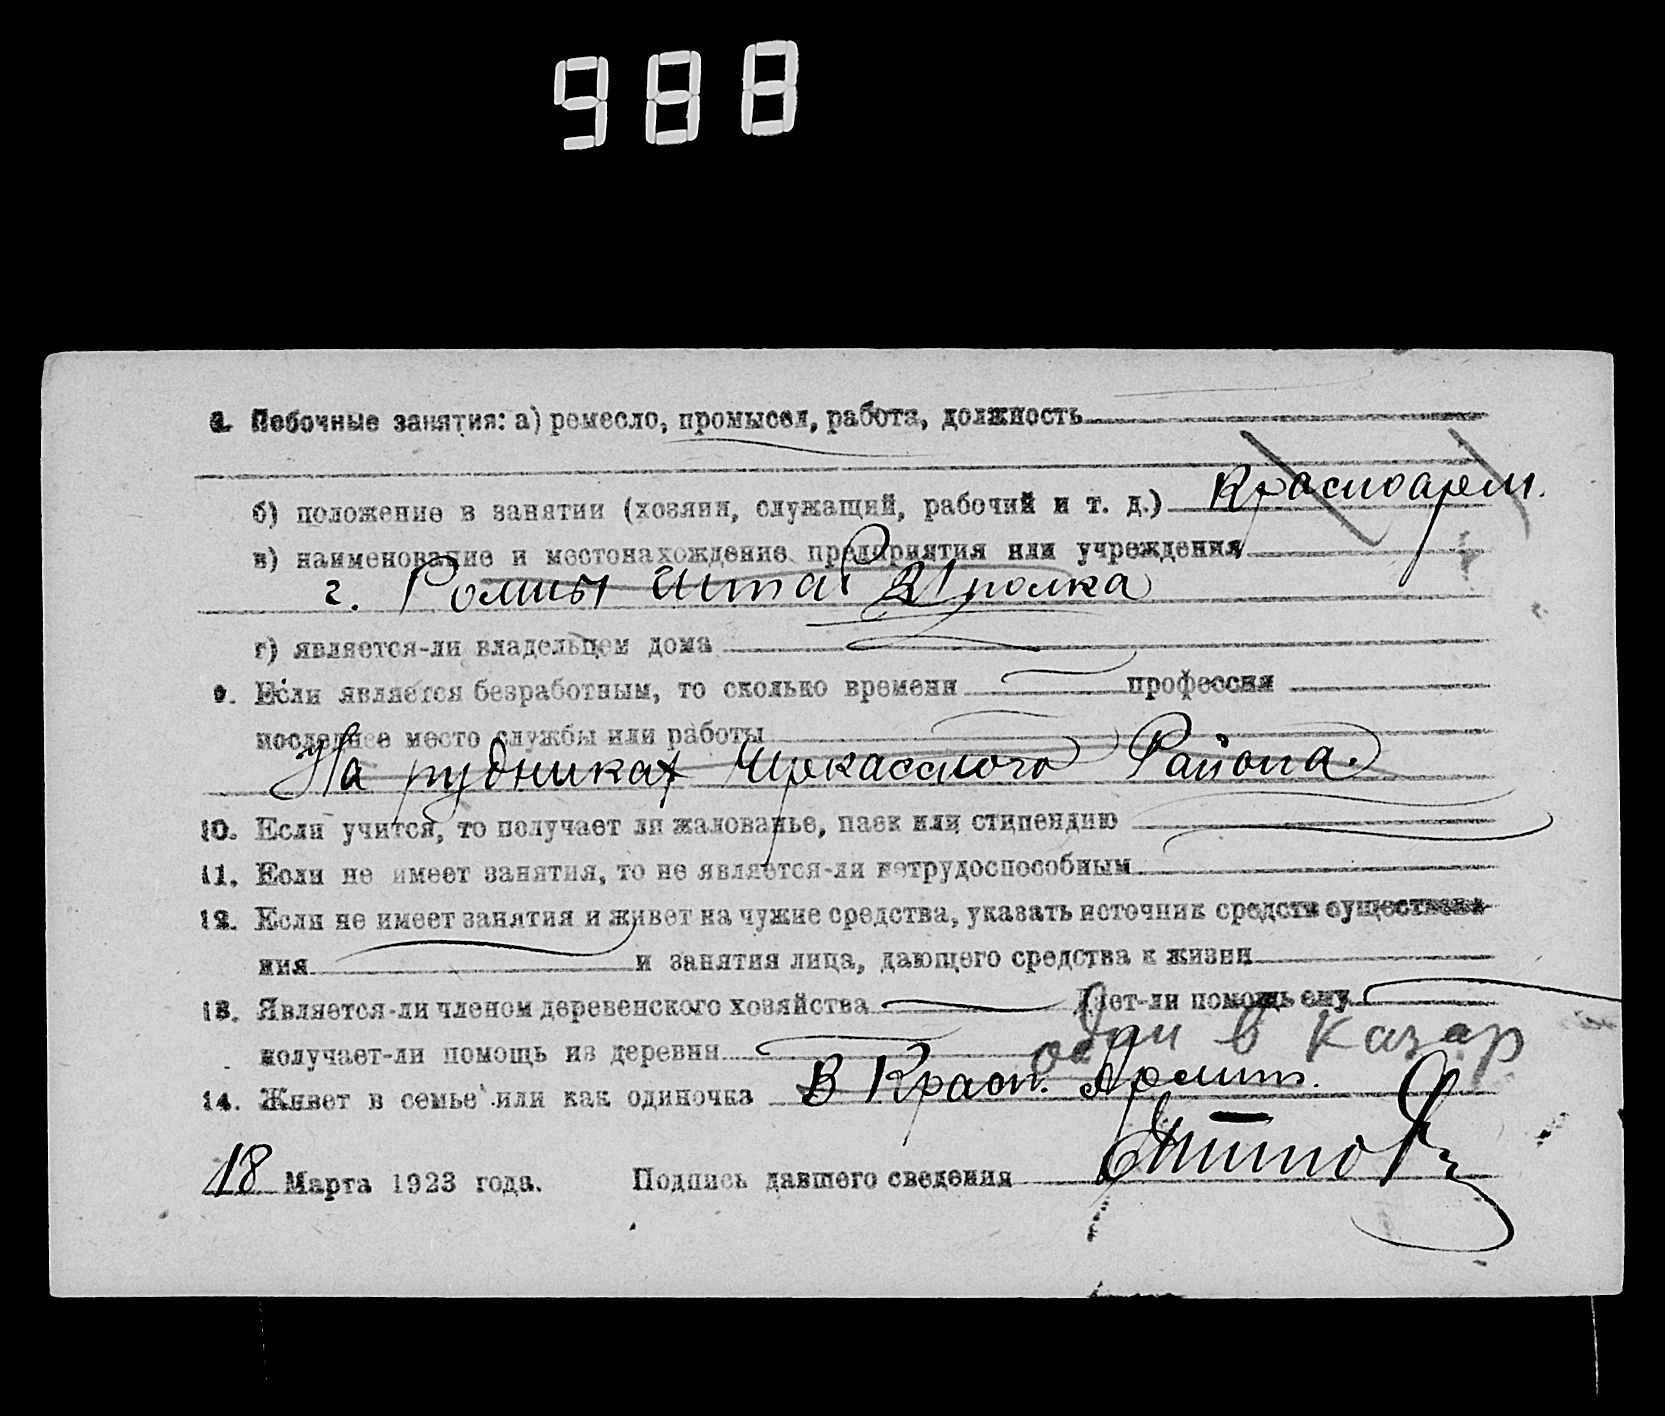 988
8. Побочные занятия: а) ремесло, промысел, работа, должность
б) положение в занятии (хозяин, служащий, рабочий и т. д.) Красноарм.
в) наименование и местонахождение предприятия или учреждения
г. Ромны Штаб полка
г) является-ли владельцем дома
9. Если является безработным, то сколько времени профессия
последнее место службы или работы
На рудниках Черкасского Района.
10. Если учится, то получает ли жалованье, паек или стипендию
11. Если не имеет занятия, то не является-ли нетрудоспособным
12. Если не имеет занятия и живет на чужие средства, указать источник средств существова-
ния и занятия лица, дающего средства к жизни
13. Является-ли членом деревенского хозяйства Дает-ли помощь ему
получает-ли помощь из деревни один в казар
14. Живет в семье или как одиночка В Красн. Армии.
18 Марта 1923 года. Подпись давшего сведения